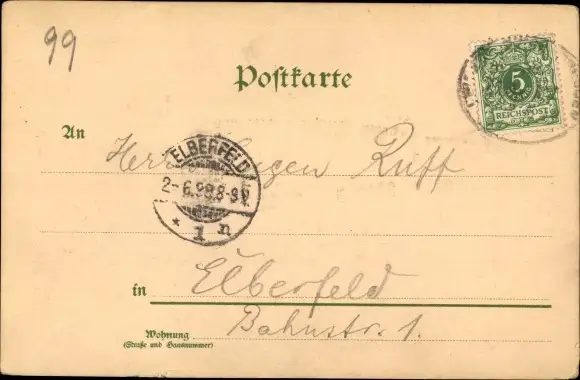 99
Postkarte
5
REICHSPOST
An
Herr Eugen Ruff
ELBERFELD
* 1 n
in Elberfeld
Wohnung
(Straße und Hausnummer)
Bahnstr. 1.